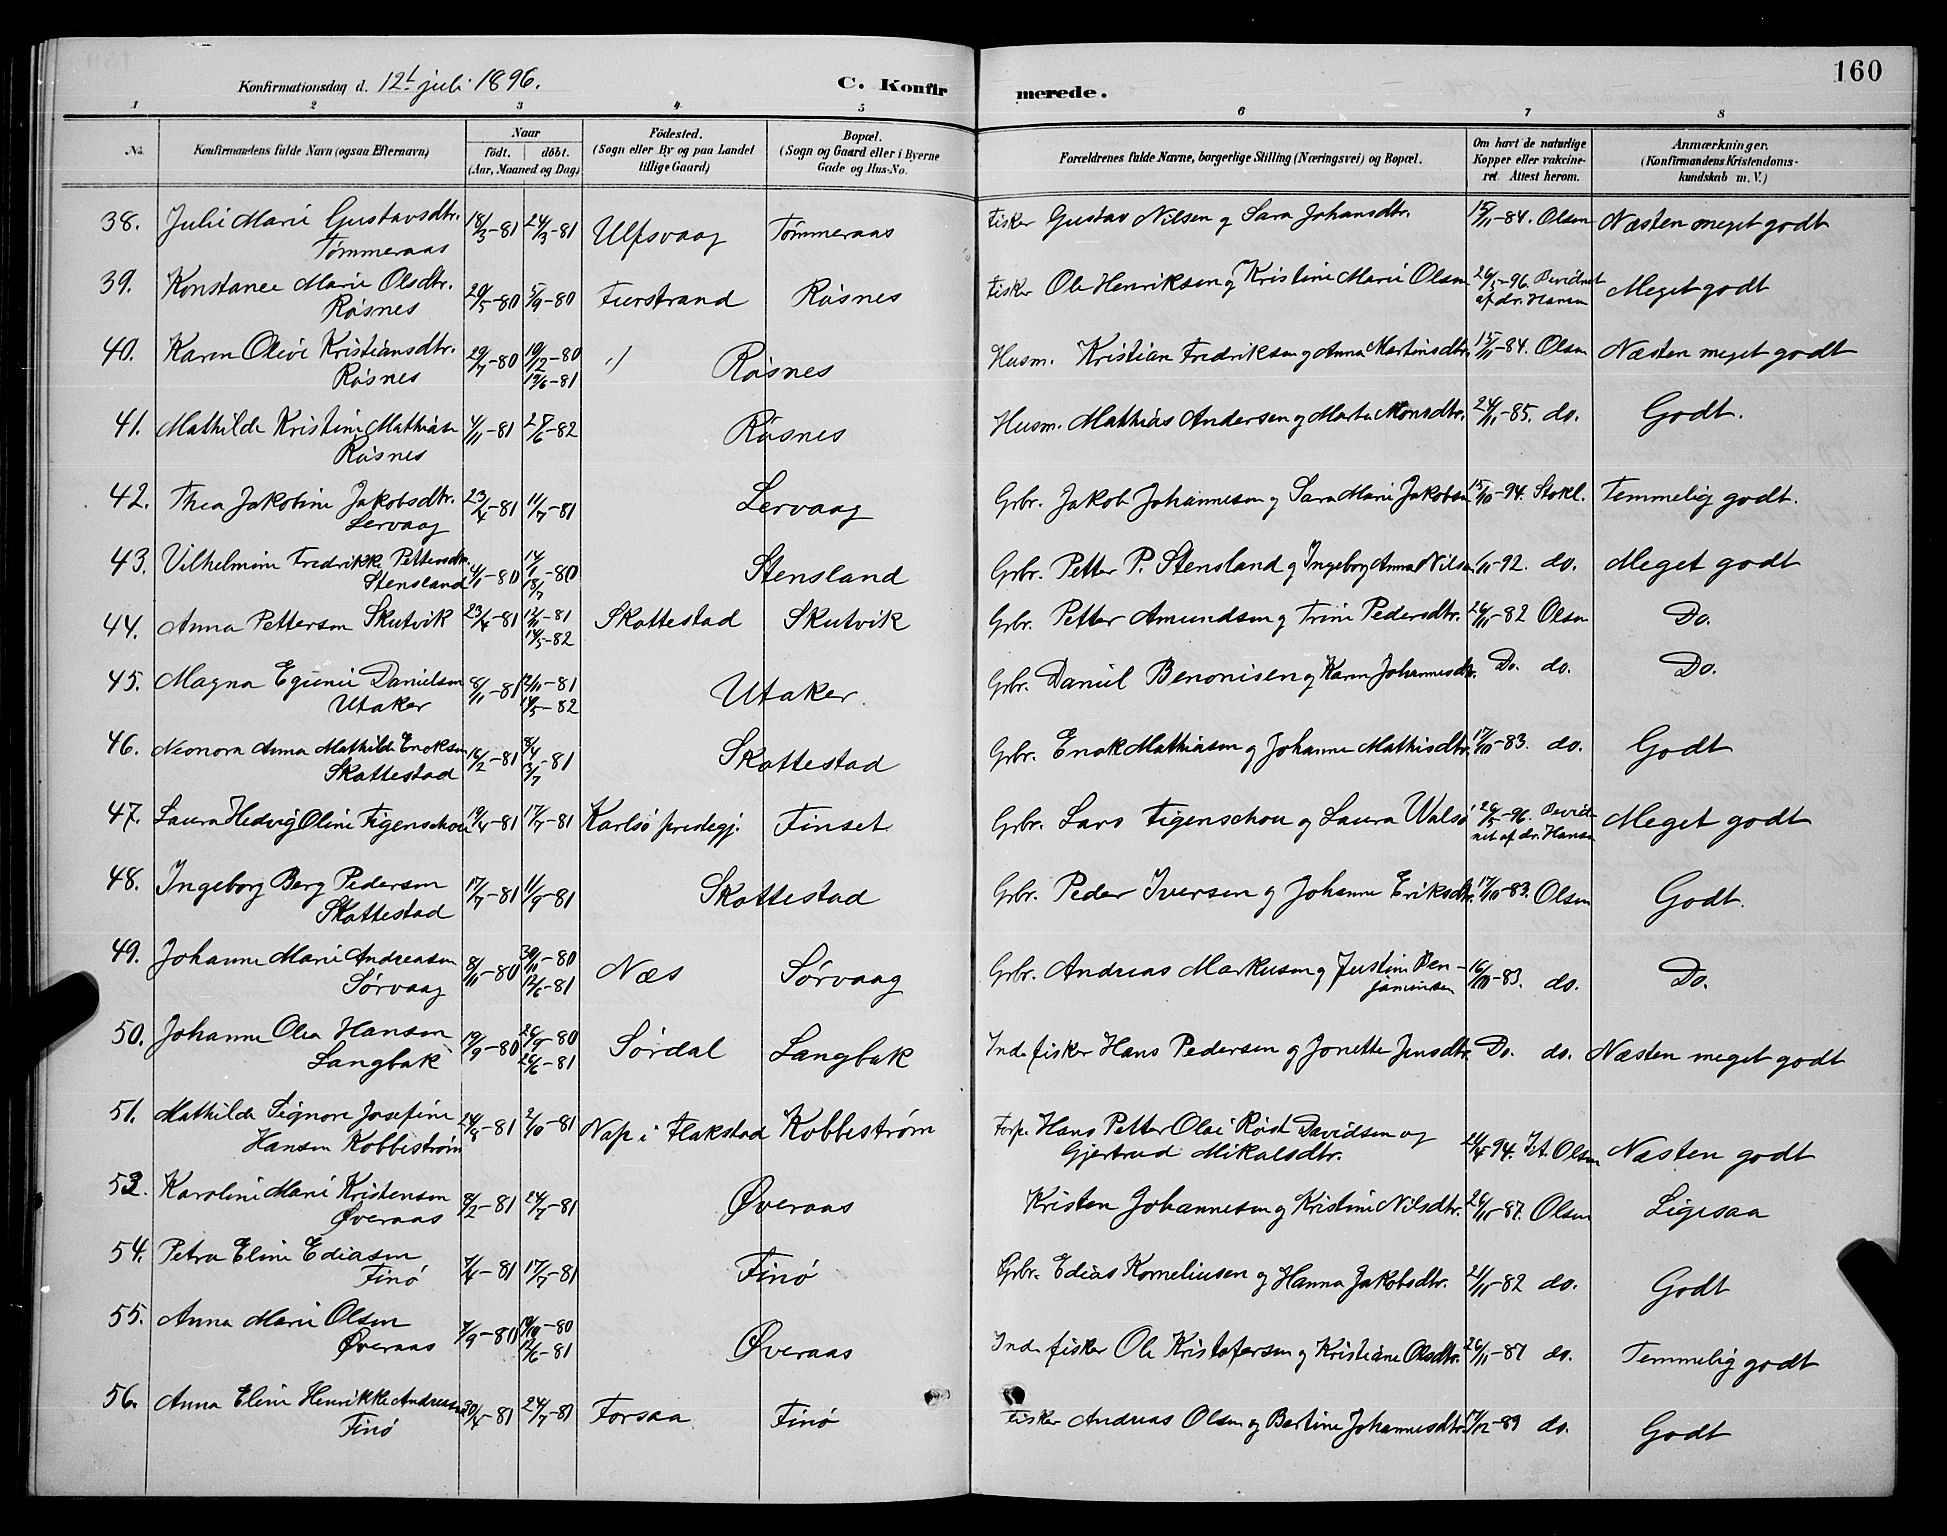 160
Konfirmationsdag d. 12t juli 1896. C. Konfirmerede.
1 2 3 4 5 6 7 8
No. Konfirmandens fulde Navn (ogsaa Efternavn) Naar Födested. Bopæl. Forældrenes fulde Navne, borgerlige Stilling (Næringsvei) og Bopæl. Om havt de naturlige Anmærkninger.
födt. döbt. (Sogn eller By og paa Landet (Sogn og Gaard eller i Byerne Kopper eller vakcine- (Konfirmandens Kristendoms-
(Aar, Maaned og Dag) tillige Gaard) Gade og Hus-No. ret. Attest herom. kundskab m. V.)
38. Julie Marie Gustavsdtr. 18/3-81 24/3-81 Ulfsvaag Tømmeraas Fisker Gustav Nilsen og Sara Johansdtr. 15/11-84. Olsen Næsten meget godt
Tømmeraas
39. Konstance Marie Olsdtr. 20/5-80 5/9-80 Furstrand Røsnes Fisker Ole Henriksen og Kristine Marie Olsen 26/5-96. Bevidnet Meget godt
Røsnes af dr. Hansen
40. Karen Olive Kristiansdtr. 29/7-80 19/2-80 Røsnes Husm. Kristian Fredriksen og Anna Martinsdtr. 15/11-84. Olsen Næsten meget godt
Røsnes 19/6-81
41. Mathilde Kristine Mathiasen 4/11-81 25/6-82 Røsnes Husm. Mathias Andersen og Marta Monsdtr. 24/11-85. do. Godt.
Røsnes
42. Thea Jakobine Jakobsdtr. 23/4-81 11/7-81 Lervaag Grbr. Jakob Johannesen og Sara Marie Jakobsen 15/10-94. Stokl. Temmelig godt.
Lervaag
43. Vilhelmine Fredrikke Pettersdtr. 4/1-80 14/1 -80 Stensland Grbr. Petter P. Stensland og Ingeborg Anna Nilsen 1/11-92. do. Meget godt
Stensland 18/7
44. Anna Pettersen Skutvik 23/4-81 12/11-81 Skottestad Skutvik Grbr. Petter Amundsen og Trine Pedersdtr. 26/11-82 Olsen Do.
14/5-82
45. Magna Eginie Danielsen 8/11-81 12/11-81 Utaker. Grbr. Daniel Benonisen og Karen Johannesdtr. Do. do. Do.
Utaker 14/5-82
46. Neonora Anna Mathilde Enoksen 16/2-81 8/4 -81 Skottestad Grbr. Enok Mathiasen og Johanne Mathisdtr. 17/10-83. do. Godt
Skottestad 3/7
47. Laura Hedvig Oline Figenschou 19/4-81 17/7-81 Karlsö prestegj. Finset Grbr. Lars Figenschou og Laura Walsø 26/5-96. Bevid- Meget godt
net af dr. Hansen
48. Ingeborg Berg Pedersen 17/7-81 11/9-81 Skottestad Grbr. Peder Iversen og Johanne Eriksdtr. 17/10-83. Olsen Godt.
Skottestad
49. Johanne Marie Andreasen 8/11-80 30/11-80 Næs Sørvaag Grbr. Andreas Markusen og Justine Ben- 16/10-83. do. Do.
Sørvaag 12/6-81 jaminsen
50. Johanne Olea Hansen 19/9-80 26/9-80 Sørdal Langbak Ind. fisker Hans Pedersen og Jonette Jensdtr. Do. do. Næsten meget godt
Langbak 26/6-81
51. Mathilde Signora Josefine 24/8-81 2/10-81 Nap i Flakstad Kobbestrøm Forp. Hans Petter Olai Røist Davidsen og 24/4-94. Olsen Næsten godt
Hansen Kobbestrøm Gjertrud Mikalsdtr.
53. Karoline Marie Kristensen 8/2-81 24/7-81 Øveraas Kristen Johannesen og Kristine Nilsdtr. 26/11-87. Olsen Ligesaa
Øveraas
54. Petra Eline Ediasen 7/4-81 17/7-81 Finø Grbr. Edias Korneliusen og Hanna Jakobsdtr. 21/11-82 do. Godt
Finø
55. Anna Marie Olsen 7/9-80 19/10-80 Øveraas Ind. fisker Ole Kristofersen og Kristiane Olsdtr. 26/11-87 do. Temmelig godt
Øveraas 12/6-81
56. Anna Eline Henrikke Andreasen 30/4-81 24/7-81 Forsaa Finø Fisker Andreas Olsen og Bertine Johannesdtr. 17/12-89 do. Godt
Finø